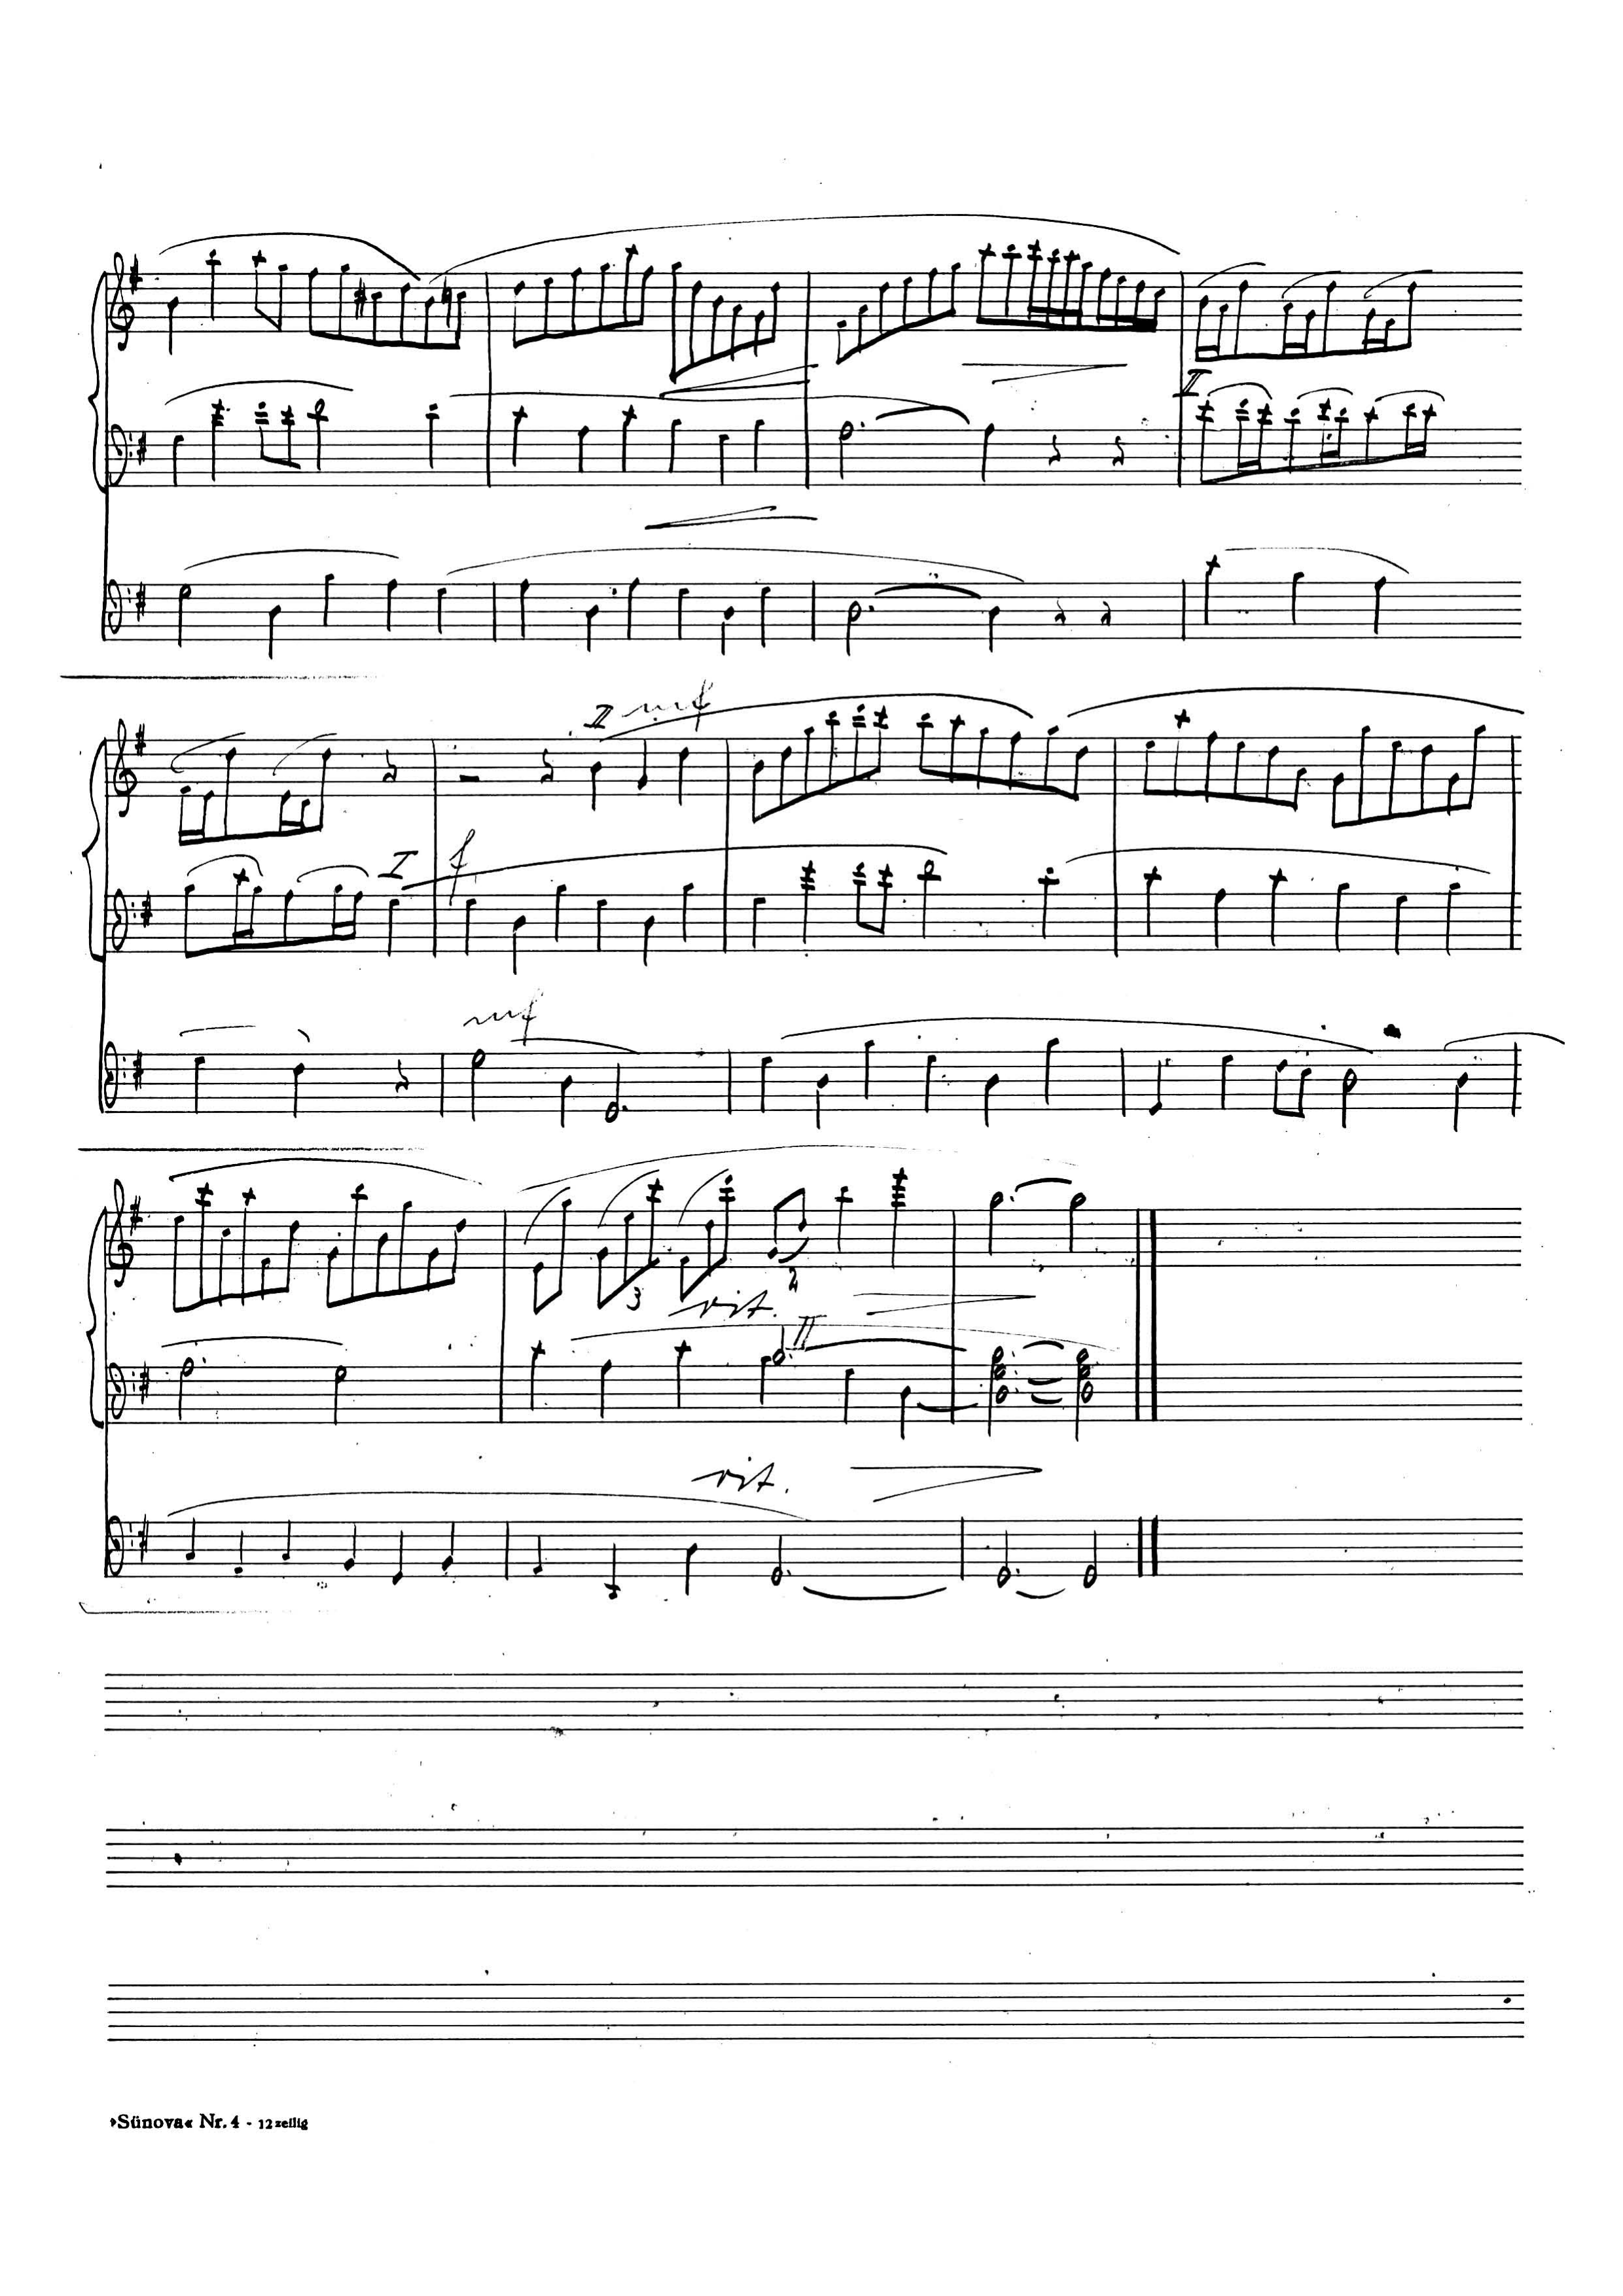 II
II mf
I f
mf
3
2
rit.
II
rit.
»Sünova« Nr. 4 - 12zeilig